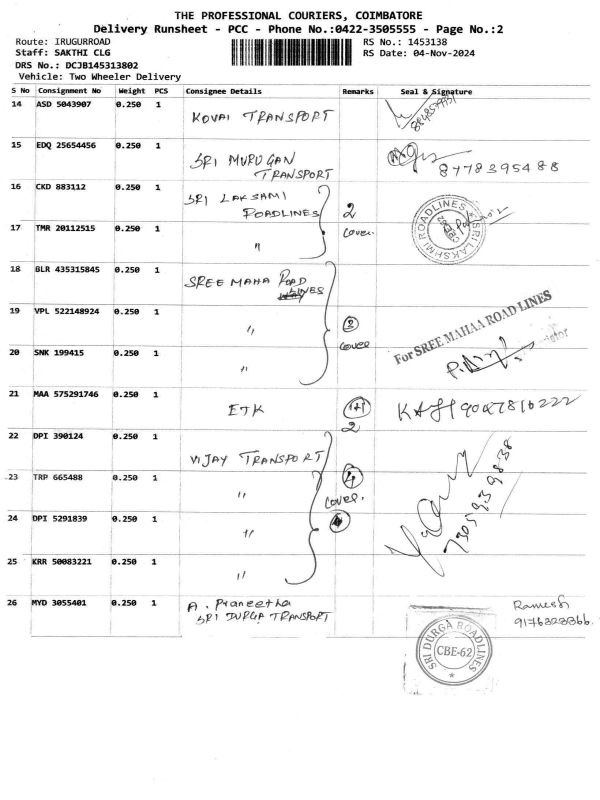 THE PROFESSIONAL COURIERS, COIMBATORE
Delivery Runsheet - PCC - Phone No.:0422-3505555 - Page No.:2
Route: IRUGURROAD
RS No.: 1453138
Staff: SAKTHI CLG
RS Date: 04-Nov-2024
DRS No.: DCJB145313802
Vehicle: Two Wheeler Delivery
S No Consignment No Weight PCS Consignee Details Remarks Seal & Signature
14 ASD 5043907 0.250 1 KOVAI TRANSPORT
15 EDQ 25654456 0.250 1 SRI MURUGAN TRANSPORT 8778395488
16 CKD 883112 0.250 1 SRI LAKSAMI ROADLINES 2 cover
SRI LAKSHMI ROADLINES
17 TMR 20112515 0.250 1 "
18 BLR 435315845 0.250 1 SREE MAHA ROAD LINES
19 VPL 522148924 0.250 1 " 3 cover
For SREE MAHAA ROAD LINES
20 SNK 199415 0.250 1 "
21 MAA 575291746 0.250 1 ETK 1+1 2
22 DPI 390124 0.250 1 VIJAY TRANSPORT
23 TRP 665488 0.250 1 " 4 cover.
7305939838
24 DPI 5291839 0.250 1 "
25 KRR 50083221 0.250 1 "
26 MYD 3055401 0.250 1 A. Praneetha
SRI DURGA TRANSPORT
Ramesh
SRI DURGA ROADLINES
CBE-62